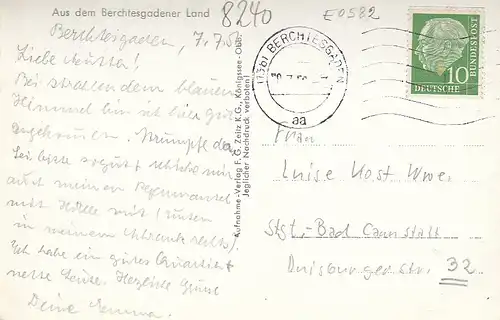 Aus dem Berchtesgadener Land
8240
E0582
Berchtesgaden, 7.7.56
Liebe Mutter!
Bei strahlendem blauen
Himmel bin ich hier gut
angekommen.
Sei bitte so gut + schicke mir
auch meinen Regenmantel
mit Hülle mit! (unten
in meinem Schrank rechts).
Ich habe ein gutes Quartier +
nette Leute. Herzliche Grüße
Deine
Aufnahme-Verlag F. G. Zeitz K.G., Königssee-Obb.
Jeglicher Nachdruck verboten!
(13b) BERCHTESGADEN
aa
10
DEUTSCHE
BUNDESPOST
Frau
Luise Kost Wwe.
Stgt.-Bad Cannstatt
Duisburgerstr. 32